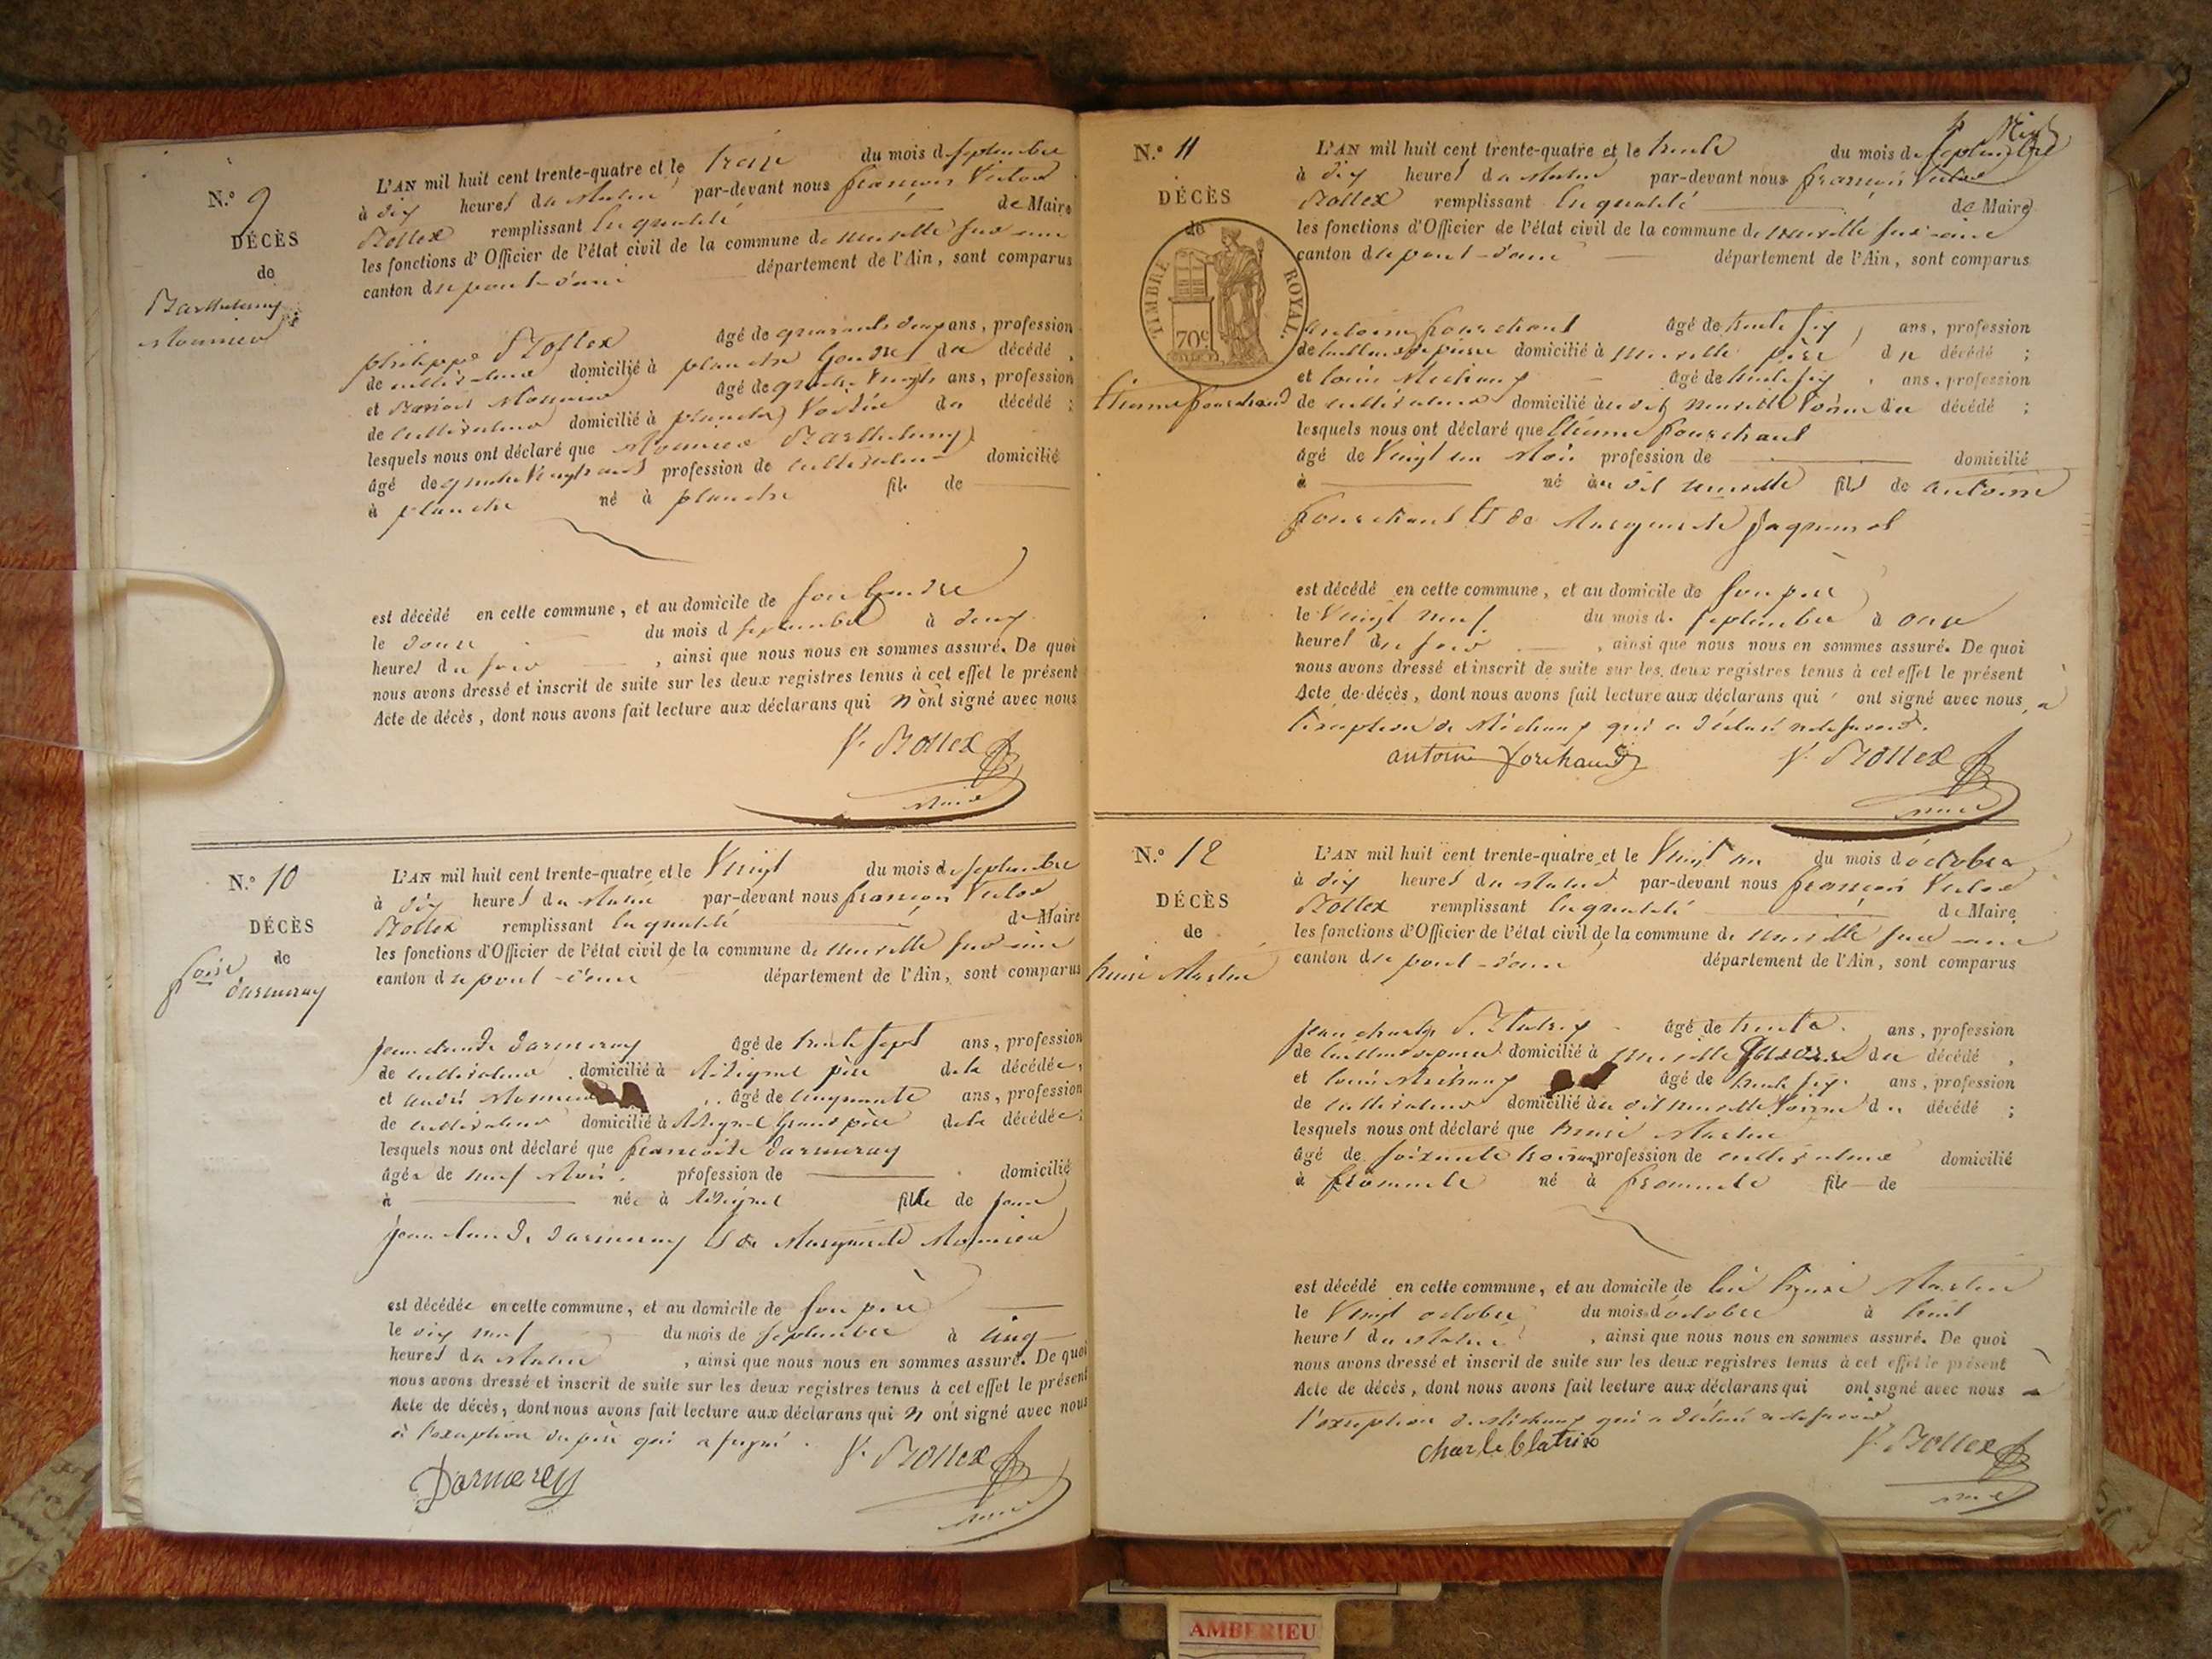 N.º 9
DÉCÈS
de
Barthelemy
Monnier
L'AN mil huit cent trente-quatre et le treize du mois de septembre
à dix heures du Matin par-devant nous françois Victor
Bollex remplissant la qualité de Maire
les fonctions d'Officier de l'état civil de la commune de neuville sur ain
canton du pont-d'ain département de l'Ain, sont comparus
philippe Bollex âgé de quarante deux ans, profession
de cultivateur domicilié à planche Gendre du décédé,
et Monnier âgé de quatre Vingts ans, profession
de cultivateur domicilié à planche Voisin du décédé;
lesquels nous ont déclaré que Monnier Barthelemy
âgé de quatre Vingts ans profession de cultivateur domicilié
à planche né à planche fils de
est décédé en cette commune, et au domicile de son Gendre
le douze du mois de septembre à deux
heures du soir, ainsi que nous nous en sommes assuré. De quoi
nous avons dressé et inscrit de suite sur les deux registres tenus à cet effet le présent
Acte de décès, dont nous avons fait lecture aux déclarans qui n'ont signé avec nous
V. Bollex
Maire
N.º 10
DÉCÈS
de
darmeray
L'AN mil huit cent trente-quatre et le Vingt du mois de septembre
à dix heures du Matin par-devant nous françois Victor
Bollex remplissant la qualité de Maire
les fonctions d'Officier de l'état civil de la commune de neuville sur ain
canton du pont-d'ain département de l'Ain, sont comparus
jean claude darmeray âgé de trente sept ans, profession
de cultivateur domicilié à père de la décédée,
et andré Monnier âgé de cinquante ans, profession
de cultivateur domicilié à Grand père de la décédée;
lesquels nous ont déclaré que françoise darmeray
âgée de neuf Mois profession de domicilié
à née à fille de
jean Claude darmeray et de Marguerite Monnier
est décédée en cette commune, et au domicile de son père
le dix neuf du mois de septembre à cinq
heures du Matin, ainsi que nous nous en sommes assuré. De quoi
nous avons dressé et inscrit de suite sur les deux registres tenus à cet effet le présent
Acte de décès, dont nous avons fait lecture aux déclarans qui n'ont signé avec nous
à l'exception du père qui a signé.
V. Bollex
Darmerey
Maire
N.º 11
DÉCÈS
de
TIMBRE ROYAL.
70c
Etienne fourchaud
L'AN mil huit cent trente-quatre et le trente du mois de septembre
à dix heures du Matin par-devant nous françois Victor
Bollex remplissant la qualité de Maire
les fonctions d'Officier de l'état civil de la commune de neuville sur ain
canton du pont-d'ain département de l'Ain, sont comparus
antoine fourchaud âgé de trente six ans, profession
de tailleur de pierre domicilié à neuville père du décédé;
et louis Michaux âgé de trente six ans, profession
de cultivateur domicilié au dit neuville Voisin du décédé;
lesquels nous ont déclaré que Etienne fourchaud
âgé de Vingt un Mois profession de domicilié
à né au dit neuville fils de antoine
fourchaud et de Marguerite
est décédé en cette commune, et au domicile de son père
le Vingt neuf du mois de septembre à onze
heures du soir, ainsi que nous nous en sommes assuré. De quoi
nous avons dressé et inscrit de suite sur les deux registres tenus à cet effet le présent
Acte de décès, dont nous avons fait lecture aux déclarans qui ont signé avec nous, à
l'exception de Michaux qui a déclaré ne le savoir.
antoine forchaud V. Bollex
Maire
N.º 12
DÉCÈS
de
Martin
L'AN mil huit cent trente-quatre et le Vingt un du mois d'octobre
à dix heures du Matin par-devant nous françois Victor
Bollex remplissant la qualité de Maire
les fonctions d'Officier de l'état civil de la commune de neuville sur ain
canton du pont-d'ain département de l'Ain, sont comparus
jean charles Blatrix âgé de trente ans, profession
de tailleur de pierre domicilié à neuville du décédé,
et louis Michaux âgé de trente six ans, profession
de cultivateur domicilié au dit neuville Voisin du décédé;
lesquels nous ont déclaré que Martin
âgé de soixante trois ans profession de cultivateur domicilié
à fromente né à fromente fils de
est décédé en cette commune, et au domicile de Martin
le Vingt octobre du mois d'octobre à huit
heures du Matin, ainsi que nous nous en sommes assuré. De quoi
nous avons dressé et inscrit de suite sur les deux registres tenus à cet effet le présent
Acte de décès, dont nous avons fait lecture aux déclarans qui ont signé avec nous à
l'exception de Michaux qui a déclaré ne le savoir
charle blatrix V. Bollex
AMBERIEU